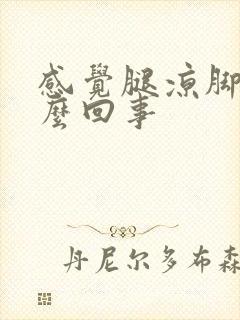 感覺腿涼腳
麼回事
丹尼尔多布森